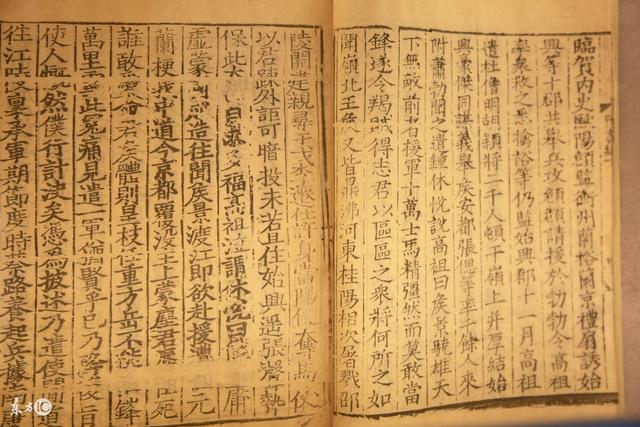 臨賀內史歐陽頠監衡州蘭裕蘭京禮扇誘始
興等十郡共舉兵攻頠頠請援於勃勃令高祖
率衆救之悉擒裕等仍監始興郡十一月高祖
遣杜僧明胡穎將二千人頓于嶺上并厚結始
興豪傑同謀義舉侯安都張偲等率千餘人來
附蕭勃聞之遣鍾休悅說高祖曰侯景驍雄天
下無敵前者援軍十萬士馬精彊然而莫敢當
鋒遂令羯賊得志君以區區之衆將何所之如
聞嶺北王侯又皆鼎沸河東桂陽相次屠戮邵
陵開建親尋干戈李遷仕許身當陽便奪馬仗
以君疎外詎可暗投未若且住始興遙張聲勢
保此太山自求多福高祖泣謂休悅曰庸
虛蒙國造往聞侯景渡江即欲赴援遭元
蘭梗我中道今京都覆沒主上蒙塵君辱臣死
誰敢愛命君侯體則皇枝任重方岳不能摧鋒
萬里雪此冤痛見遣一軍猶賢乎已乃降後旨
使人慨然僕行計決矣憑爲披述乃遣使間道
往江陵稟承軍期節度時蔡路養起兵據南康
东方IC